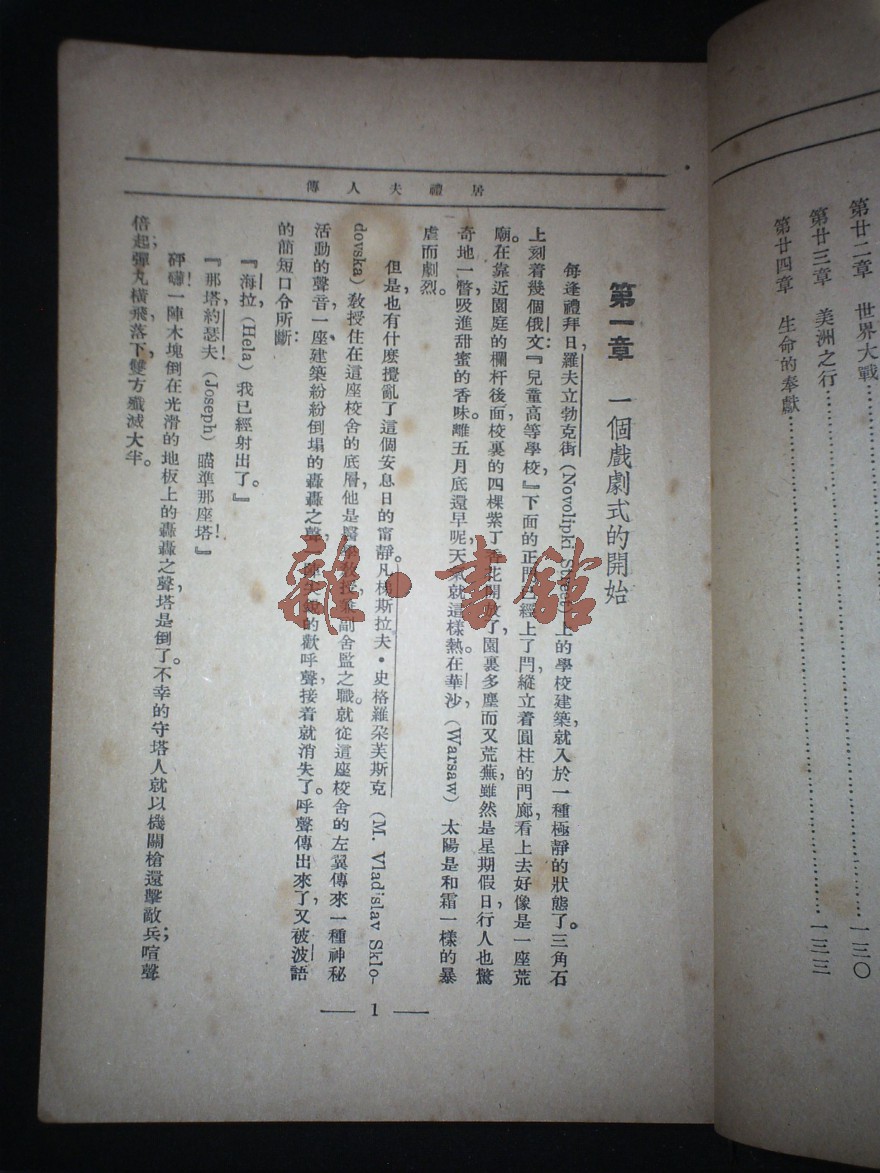 第廿二章　世界大戰……………一三〇
第廿三章　美洲之行……………一三三
第廿四章　生命的奉獻……………
居禮夫人傳
第一章　一個戲劇式的開始
每逢禮拜日，羅夫立勃克街（Novolipki Street）上的學校建築，就入於一種極靜的狀態了。三角石
上刻着幾個俄文『兒童高等學校，』下面的正門已經上了閂，縱立着圓柱的門廊，看上去好像是一座荒
廟。在靠近園庭的欄杆後面，校裏的四棵紫丁香花開放了，園裏多塵而又荒蕪，雖然是星期假日，行人也驚
奇地一瞥，吸進甜蜜的香味。離五月底還早呢，天氣就這樣熱。在華沙，（Warsaw）太陽是和霜一樣的暴
虐而劇烈。
但是，也有什麼攪亂了這個安息日的甯靜。凡梯斯拉夫・史格羅朶芙斯克（M. Vladislav Sklo-
dovska）教授住在這座校舍的底層，他是醫學教授，兼副舍監之職。就從這座校舍的左翼傳來一種神秘
活動的聲音，一座建築紛紛倒塌的轟轟之聲，的歡呼聲，接着就消失了。呼聲傳出來了，又被波語
的簡短口令所斷：
『海拉，（Hela）我已經射出了。』
『那塔，約瑟夫！（Joseph）瞄準那座塔！』
砰嚇！一陣木塊倒在光滑的地板上的轟轟之聲，塔是倒了。不幸的守塔人就以機關槍還擊敵兵；喧聲
倍起，彈丸橫飛落下，雙方殲滅大半。
1
雜・書館